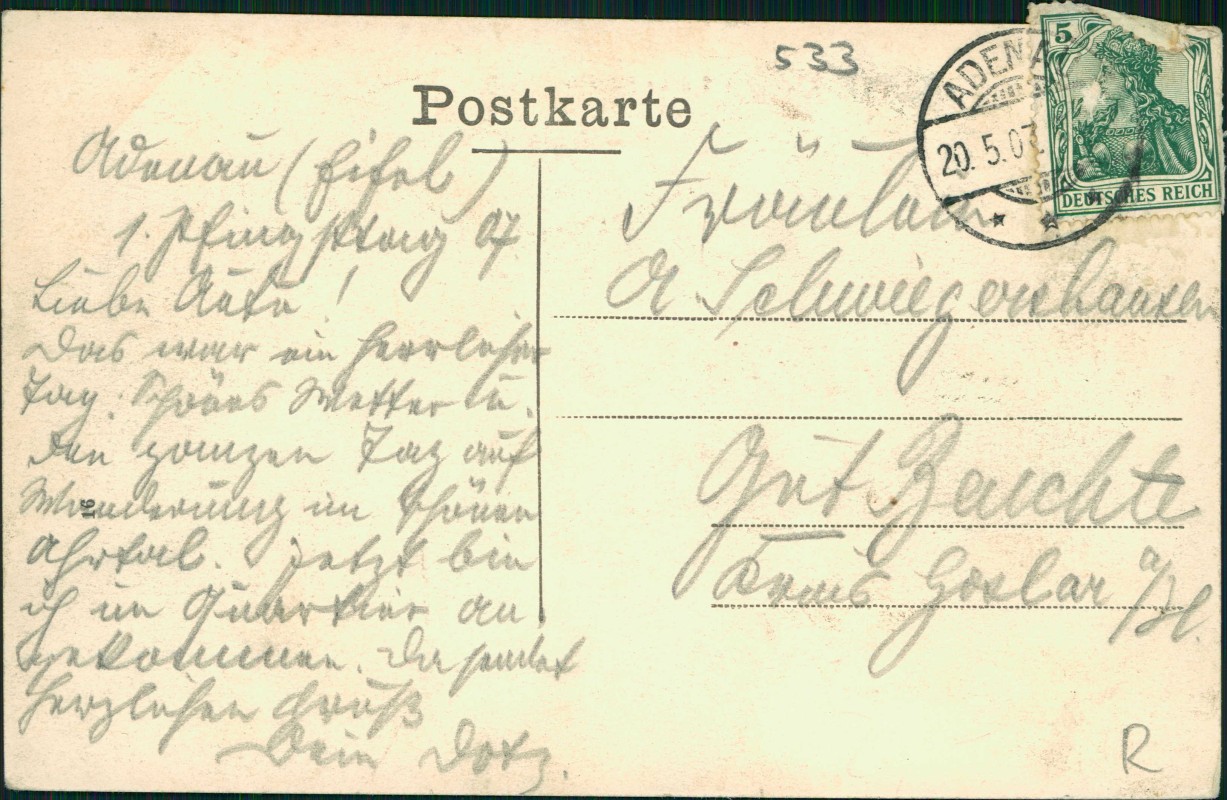 533
Postkarte
ADENA
20.5.07
5
DEUTSCHES REICH
Adenau (Eifel)
1. Pfingsttag 07.
Liebe
Das war ein herrlicher
Tag. Schönes Wetter u.
den ganzen Tag auf
Wanderung im schönen
Ahrtal. Jetzt bin
ich im Quartier an
gekommen. Da sendet
herzlichen Gruß
Dein
16
Fräulein
A Schwiegershausen
Gut
Kreis Goslar a/H.
R